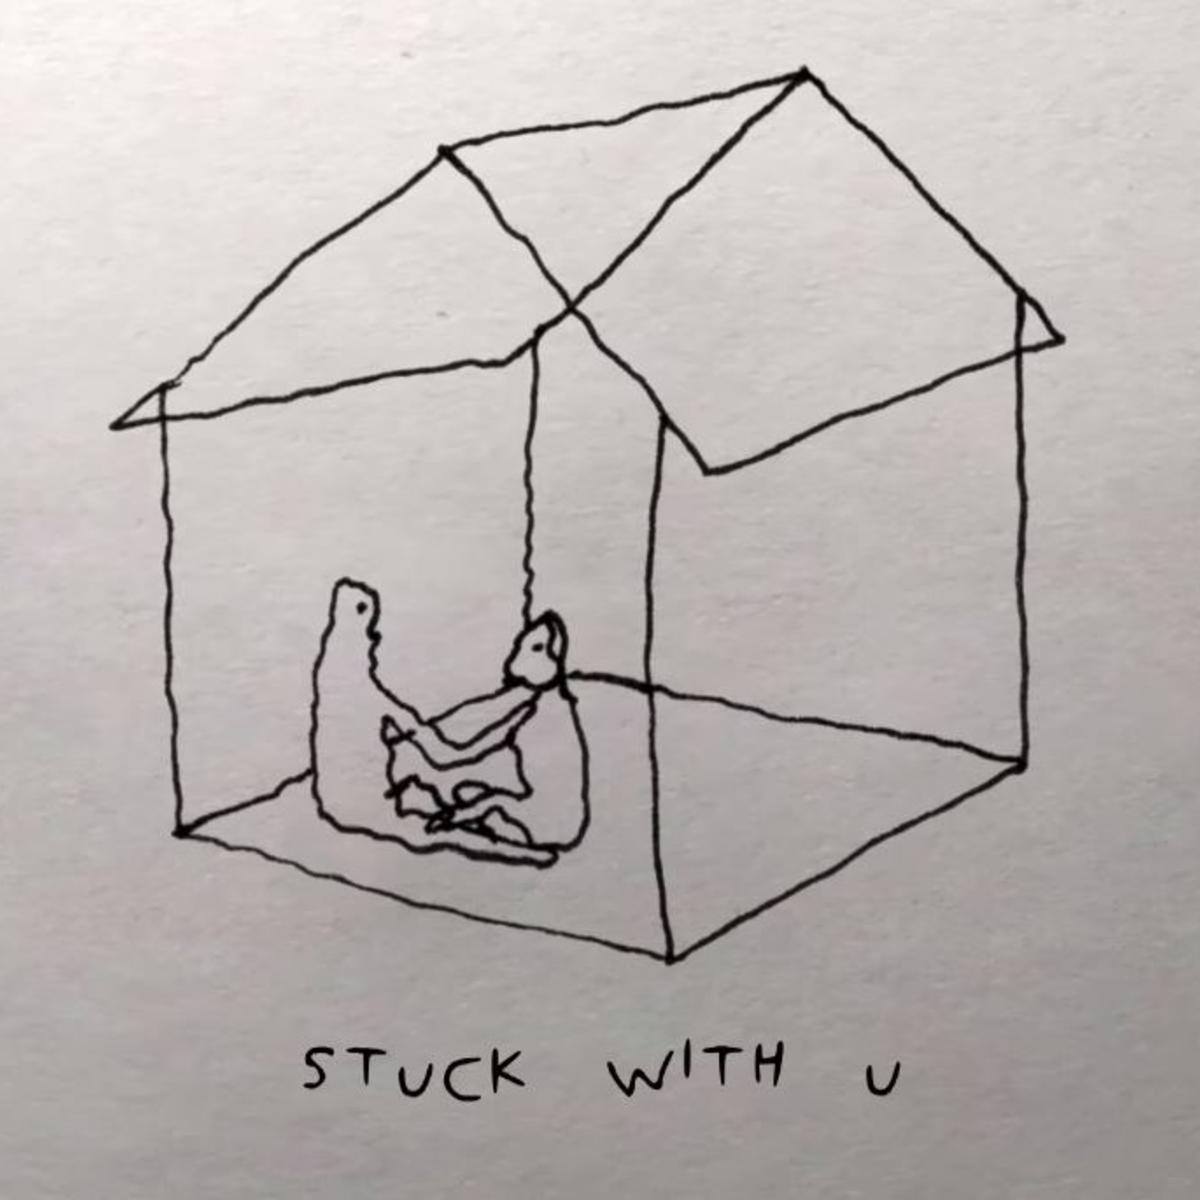 STUCK WITH U